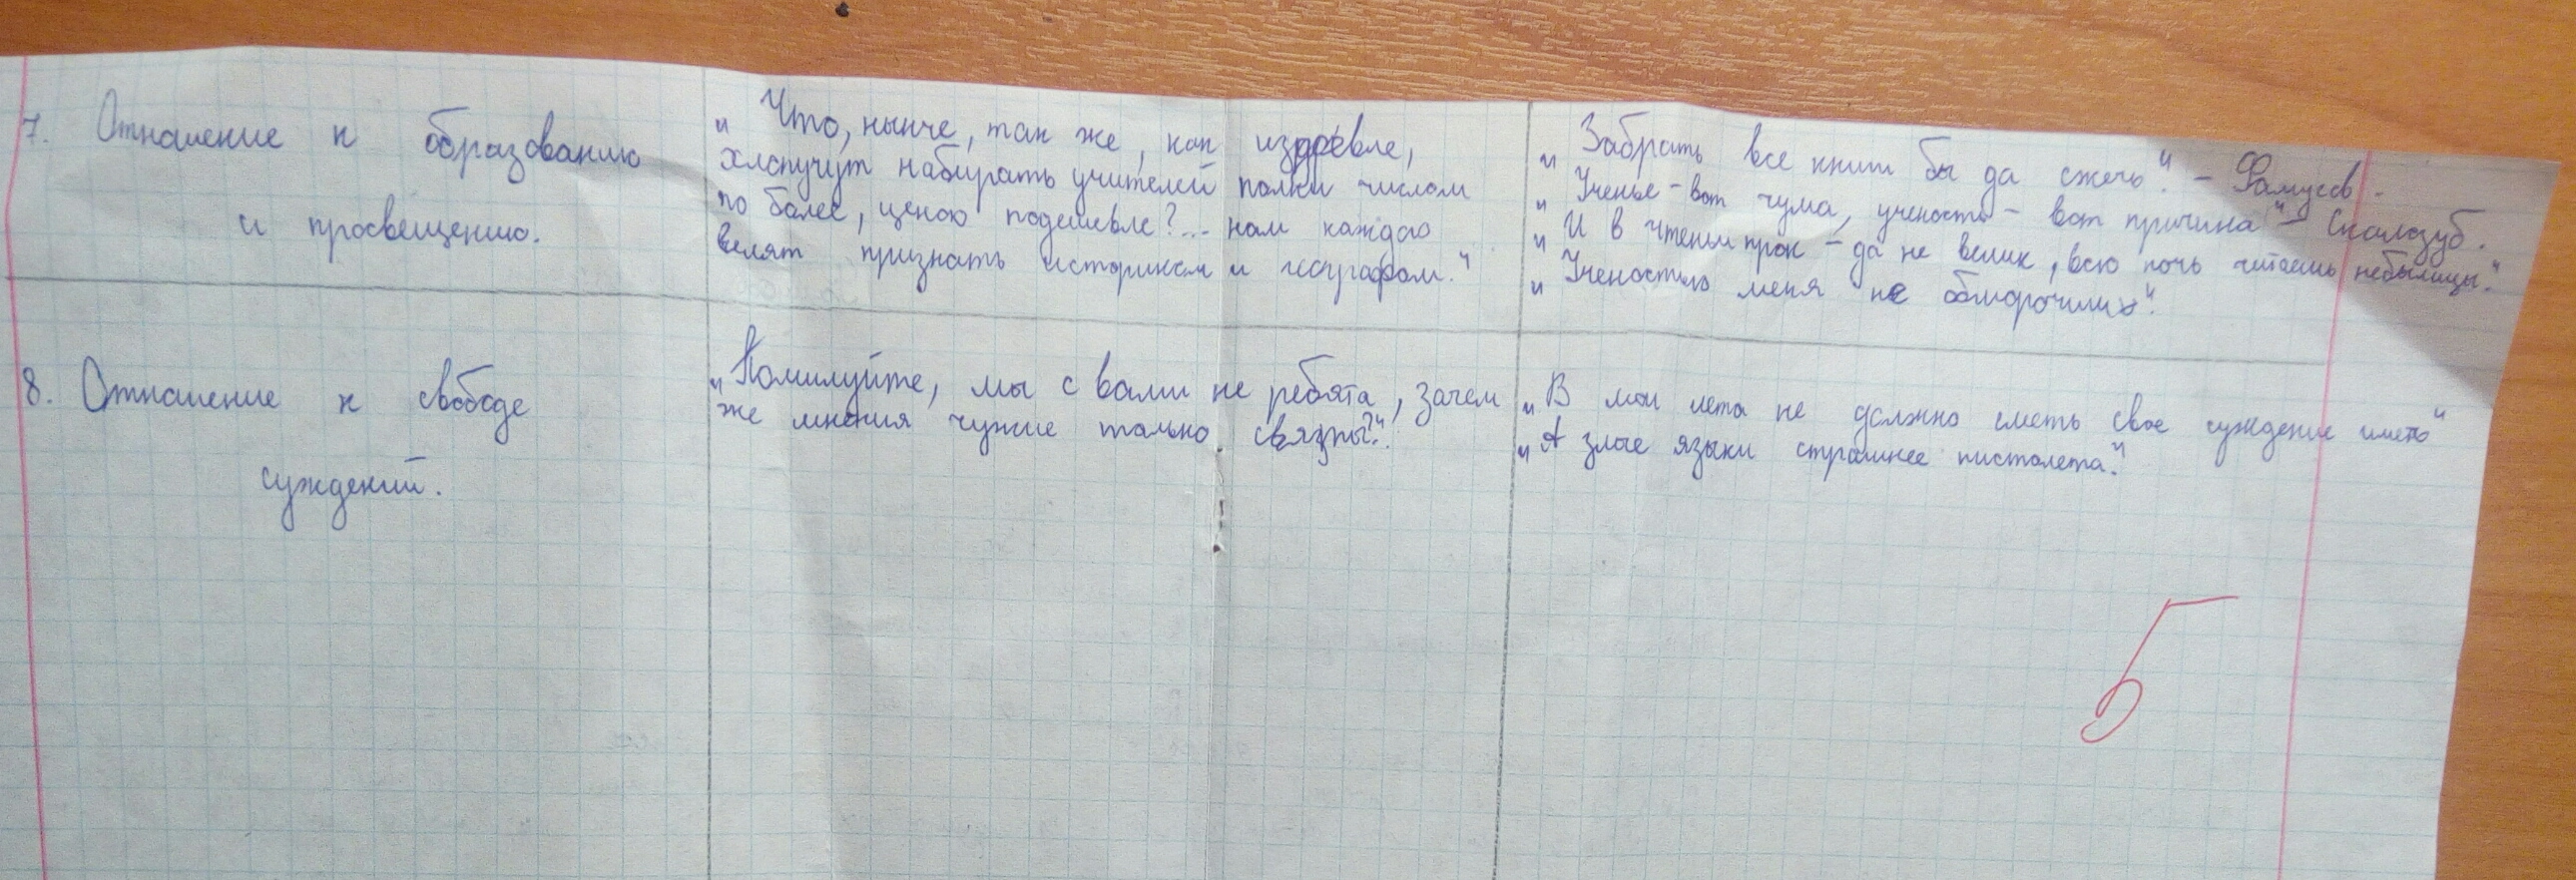 7. Отношение к образованию
и просвещению.
„Что, нынче, так же, как издревле,
хлопучут набирать учителей полки числом
по более, ценою подешевле?... нам каждого
велят признать историком и географом."
„Забрать все книги бы да сжечь". - Фамусов.
„Ученье - вот чума, ученость - вот причина" - Скалозуб.
„И в чтеньи прок - да не велик, всю ночь читаешь небылицы."
„Ученостью меня не обморочишь".
8. Отношение к свободе
суждений.
„Помилуйте, мы с вами не ребята, зачем
же мнения чужие только связны?".
„В мои лета не должно сметь свое суждение иметь"
„А злые языки страшнее пистолета."
5